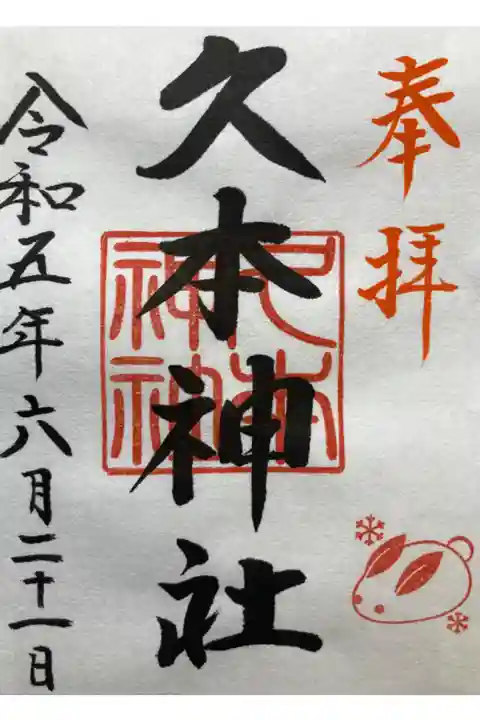 奉拝
久本神社
令和五年六月二十一日